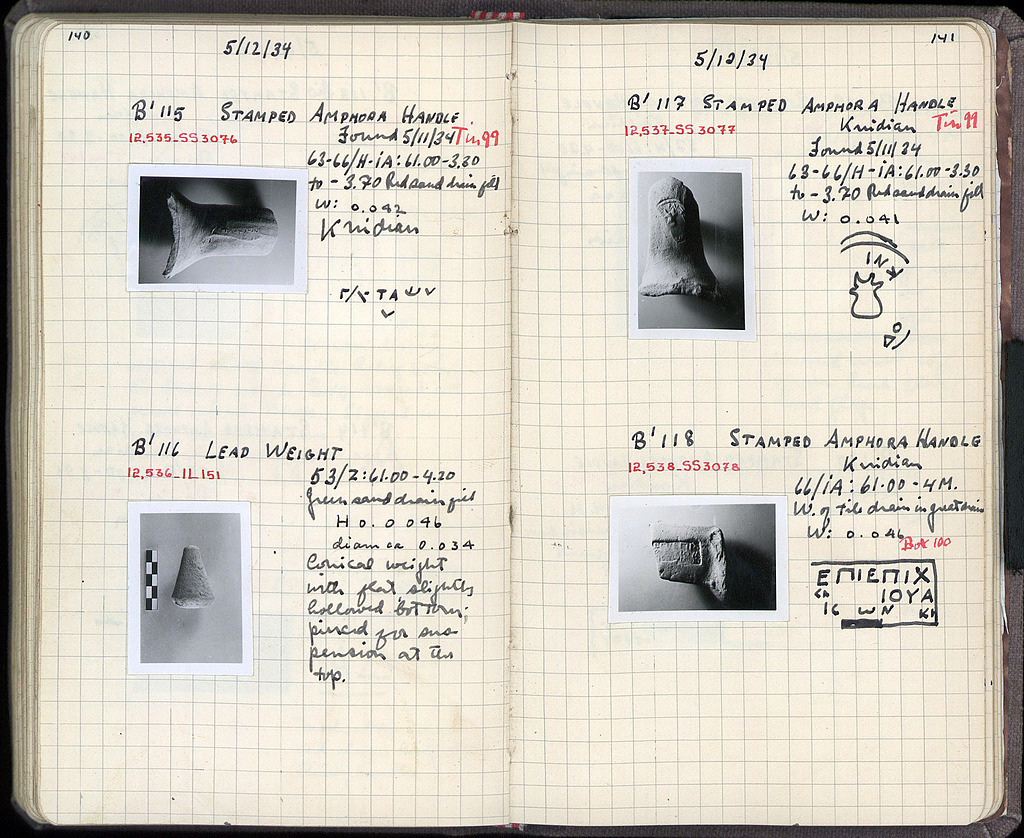 140
5/12/34
B' 115 STAMPED AMPHORA HANDLE
12,535_SS3076
Found 5/11/34 Tin 99
63-66/H-IA:61.00-3.30
to -3.70 Red sand drain fill
W: 0.042
Knidian
TA
B' 116 LEAD WEIGHT
12,536_IL151
53/Z:61.00-4.20
Green sand drain fill
H 0.046
diam ca 0.034
Conical weight
with flat slightly
hollowed bottom;
pierced for sus-
pension at the
top.
141
5/12/34
B' 117 STAMPED AMPHORA HANDLE
12,537_SS3077
Knidian Tin 99
Found 5/11/34
63-66/H-IA:61.00-3.30
to -3.70 Red sand drain fill
W: 0.041
IN
B' 118 STAMPED AMPHORA HANDLE
12,538_SS3078
Knidian
66/IA:61.00-4M.
W. of Tile drain in great drain
W: 0.046
Box 100
ΕΠΙΕΠΙΧ
ΙΟΥΑ